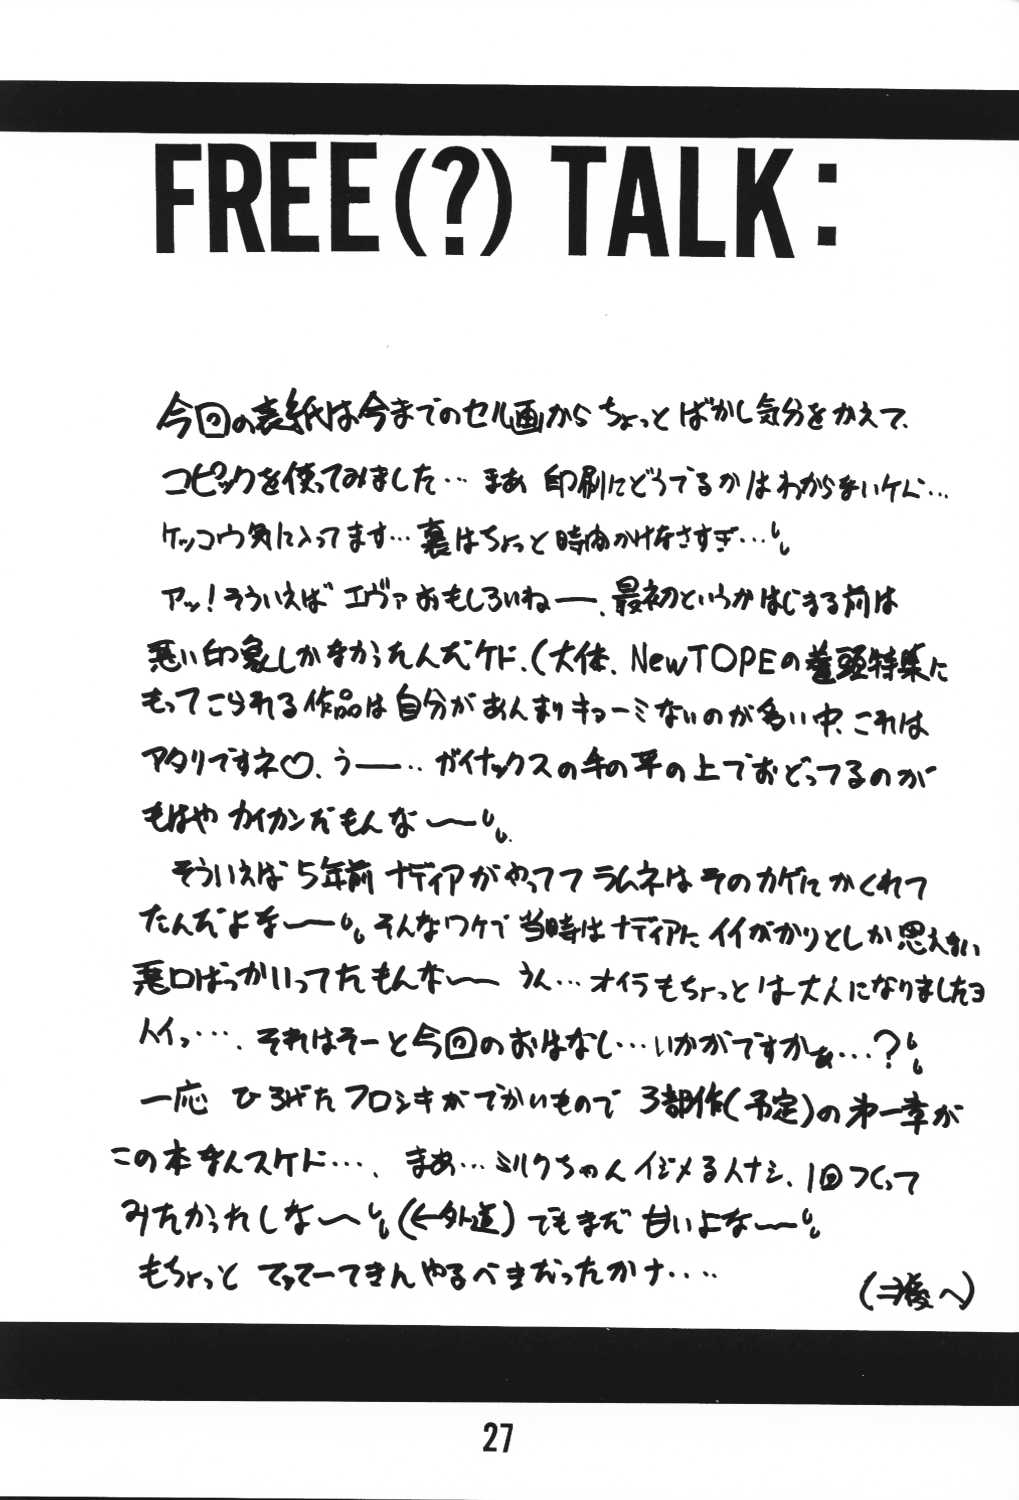 FREE(?) TALK:
今回の表紙は今までのセル画からちょっとばかし気分をかえて、
コピックを使ってみました… まあ 印刷にどうでるかはわからまいケド…
ケッコウ気に入ってます… 裏はちょっと時間かけなさすぎ…
アッ!そういえば エヴァおもしろいねー、最初というかはじまる前は
悪い印象しかなかったんだケド、(大体、NewTOPEの巻頭特集に
もってこられる作品は自分があんまりキョーミないのが多い中、これは
アタリですネ♡、うー‥ ガイナックスの手の平の上でおどってるのが
もはやカイカンだもんな〜
そういえば5年前ナディアがやってて ラムネはそのカゲにかくれて
たんだよな〜 そんなワケで当時はナディアに イイがかりとしか思えない
悪口ばっかいってたもんな〜 うん…オイラもちょっとは大人になりましたヨ
ハイッ…、それはそーと今回のおはなし…いかがですかぁ…?
一応 ひろげたフロシキがでかいもので 3部作(予定)の第一章が
この本なんスケド…、まあ…ミルクちゃんイジメるハナシ、1回つくって
みたかったしな〜 (←外道)でもまだ甘いよな〜
もちょっと てってーてきんやるべきだったかナ‥‥
(⇒後へ)
27